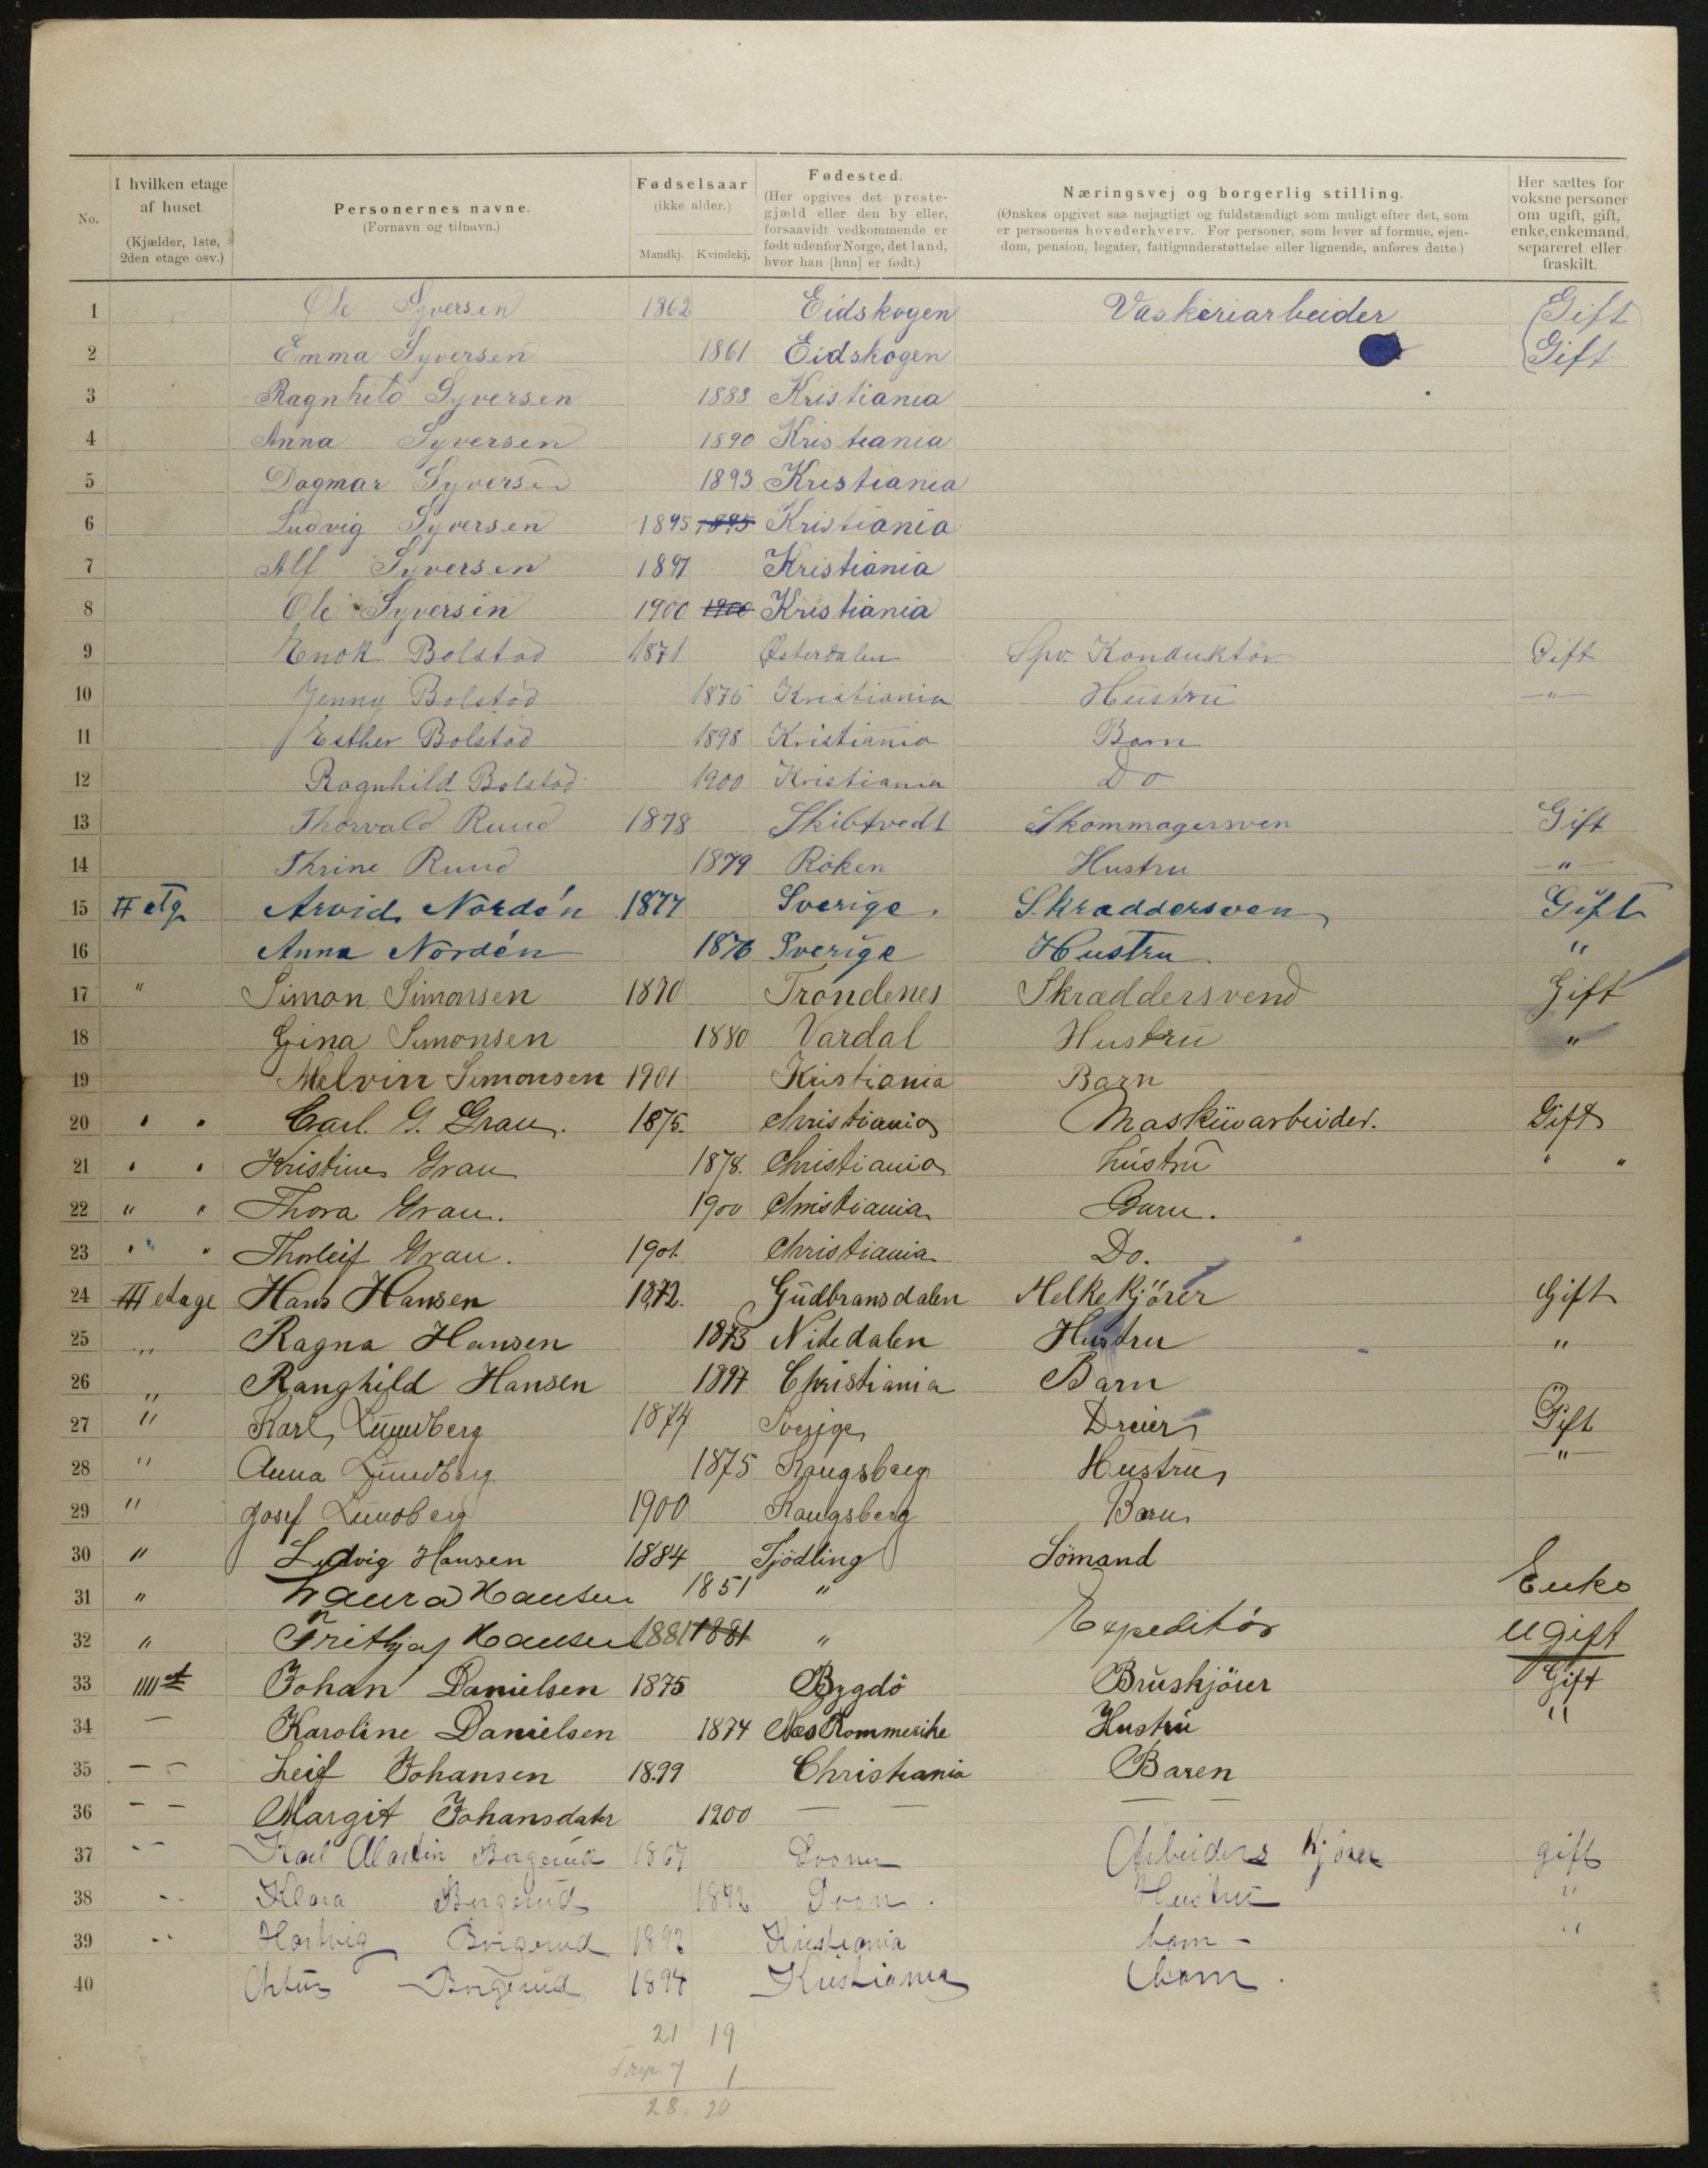 No.
I hvilken etage af huset.
(Kjælder, 1ste, 2den etage osv.)
Personernes navne.
(Fornavn og tilnavn.)
Fødselsaar
(ikke alder.)
Mandkj. Kvindekj.
Fødested.
(Her opgives det prestegjæld eller den by eller, forsaavidt vedkommende er født udenfor Norge, det land, hvor han [hun] er født.)
Næringsvej og borgerlig stilling.
(Ønskes opgivet saa nøjagtigt og fuldstændigt som muligt efter det, som er personens hovederhverv. For personer, som lever af formue, ejendom, pension, legater, fattigunderstøttelse eller lignende, anføres dette.)
Her sættes for voksne personer om ugift, gift, enke, enkemand, separeret eller fraskilt.
1 Ole Syversen 1862 Eidskogen Vaskeriarbeider Gift
2 Emma Syversen 1861 Eidskogen Gift
3 Ragnhild Syversen 1888 Kristiania
4 Anna Syversen 1890 Kristiania
5 Dagmar Syversen 1893 Kristiania
6 Ludvig Syversen 1895 1895 Kristiania
7 Alf Syversen 1897 Kristiania
8 Ole Syversen 1900 1900 Kristiania
9 Enok Bolstad 1871 Østerdalen Spv. Konduktör Gift
10 Jenny Bolstad 1875 Kristiania Hustru —"—
11 Esther Bolstad 1898 Kristiania Barn
12 Ragnhild Bolstad 1900 Kristiania Do
13 Thorvald Ruud 1878 Skibtvedt Skommagersven Gift
14 Thrine Ruud 1879 Röken Hustru —"—
15 II etg Arvid Nordén 1877 Sverige. Skraddersven Gift
16 Anna Nordén 1876 Sverige Hustru "
17 " Simon Simonsen 1870 Trondenes Skraddersvend Gift
18 Gina Simonsen 1880 Vardal Hustru "
19 Melvin Simonsen 1901 Kristiania Barn
20 " " Carl. G. Grau. 1875. Christiania Maskinarbeider. Gift
21 " " Kristine Grau 1878. Christiania hustru " "
22 " " Thora Grau. 1900 Christiania Barn.
23 " " Thorleif Grau. 1901. Christiania Do.
24 III etage Hans Hansen 1872. Gudbransdalen Melkekjörer Gift
25 " Ragna Hansen 1873 Nitedalen Hustru "
26 " Ranghild Hansen 1897 Christiania Barn
27 " Karl Lundberg 1874 Sverige Dreier Gift
28 " Anna Lundberg 1875 Kongsberg Hustru —"—
29 " Josef Lundberg 1900 Kongsberg Barn
30 " Ludvig Hansen 1884 Tjödling Sömand
31 " Laura Hansen 1851 " Enke
32 " Frithjof Hansen 1881 1881 " Expeditör Ugift
33 IIII Johan Danielsen 1875 Bygdö Bruskjörer Gift
34 — Karoline Danielsen 1874 Næs Rommerike Hustru "
35 — — Leif Johansen 1899 Christiania Baren
36 — — Margit Johansdater 1900 — — — —
37 - - Karl Martin Borgerud 1867 Arbeiders Kjörer gift
38 - - Klara Borgerud Hustru "
39 - - Hartvig Borgerud Kristiania barn - "
40 Artur Borgerud 1894 Kristiania barn.
21 19
7 1
28. 20